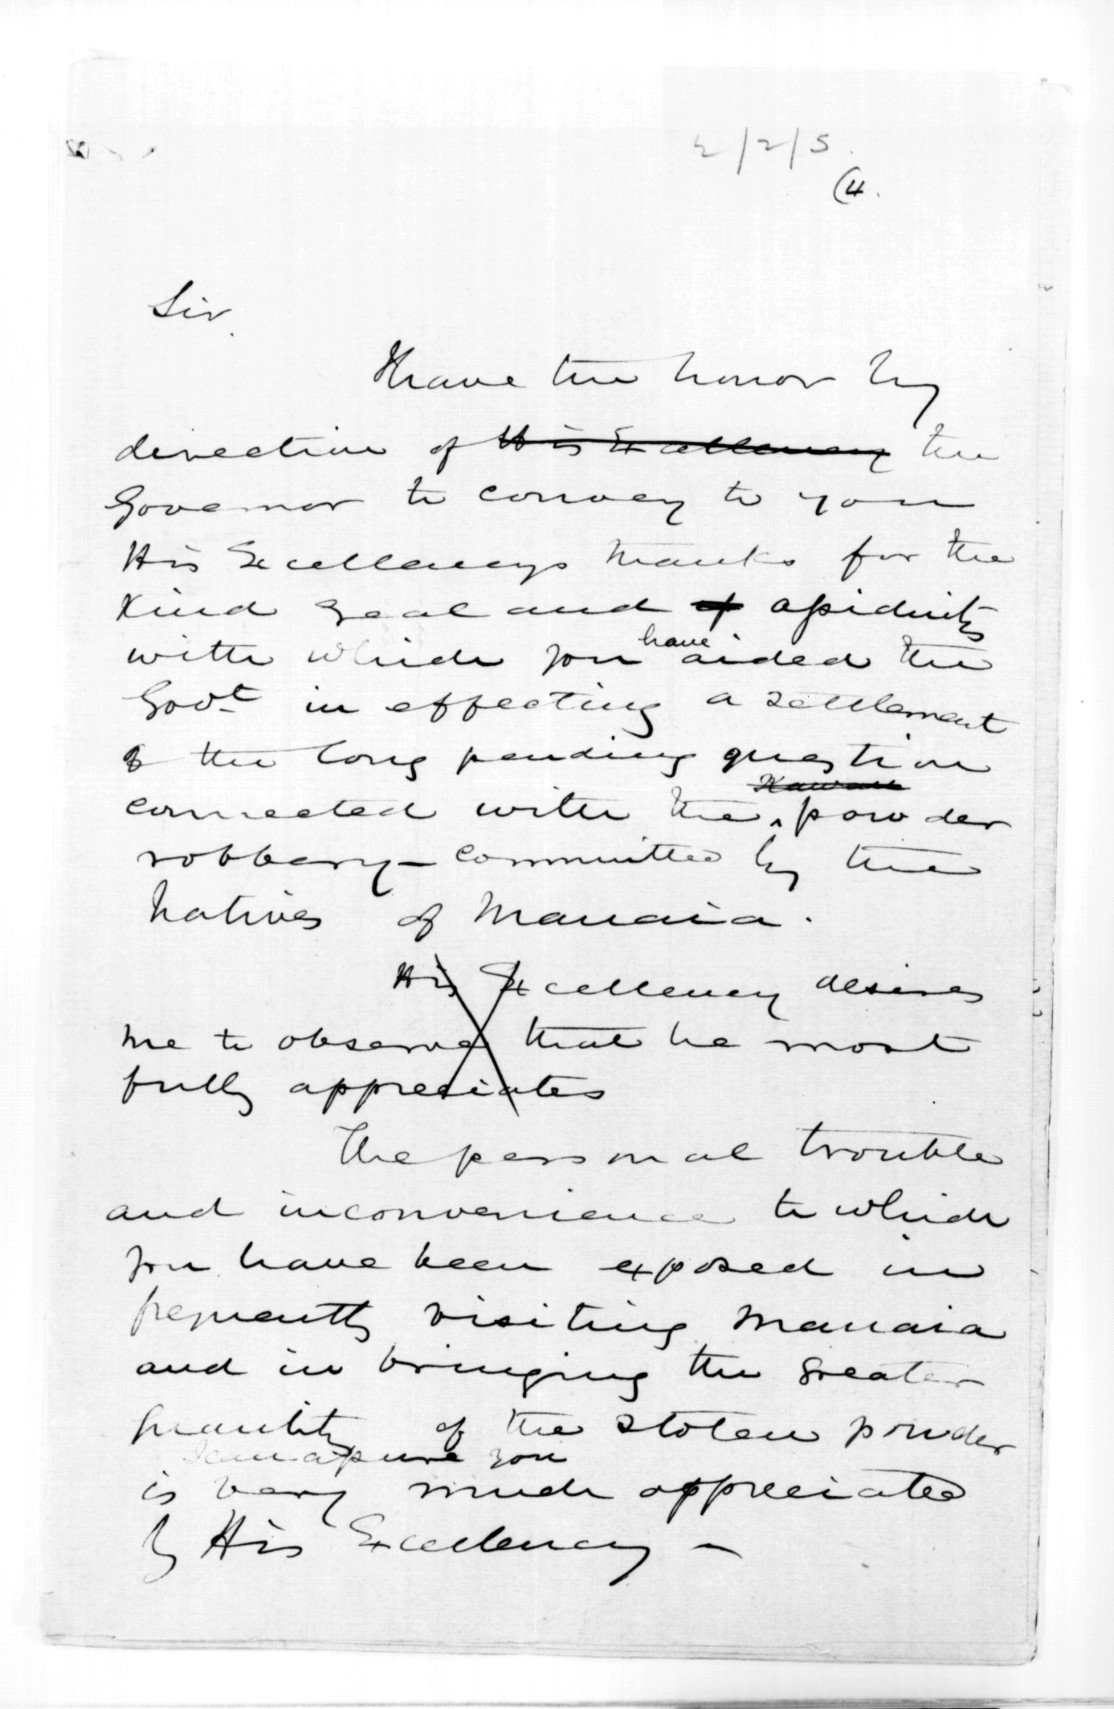 2/2/5.
(4.
Sir.
I have the honor by
direction of His Excellency the
Governor to convey to you
His Excellencys thanks for the
Kind zeal and of assiduity
with which you have aided the
Govt. in effecting a settlement
of the long pending question
connected with the Kawau powder
robbery - committed by the
Natives of Manaia.
His Excellency desires
me to observe that he most
fully appreciates
The personal trouble
and inconvenience to which
you have been exposed in
frequently visiting Manaia
and in bringing the greater
quantity of the stolen powder
I can assure you
is very much appreciated
by His Excellency -